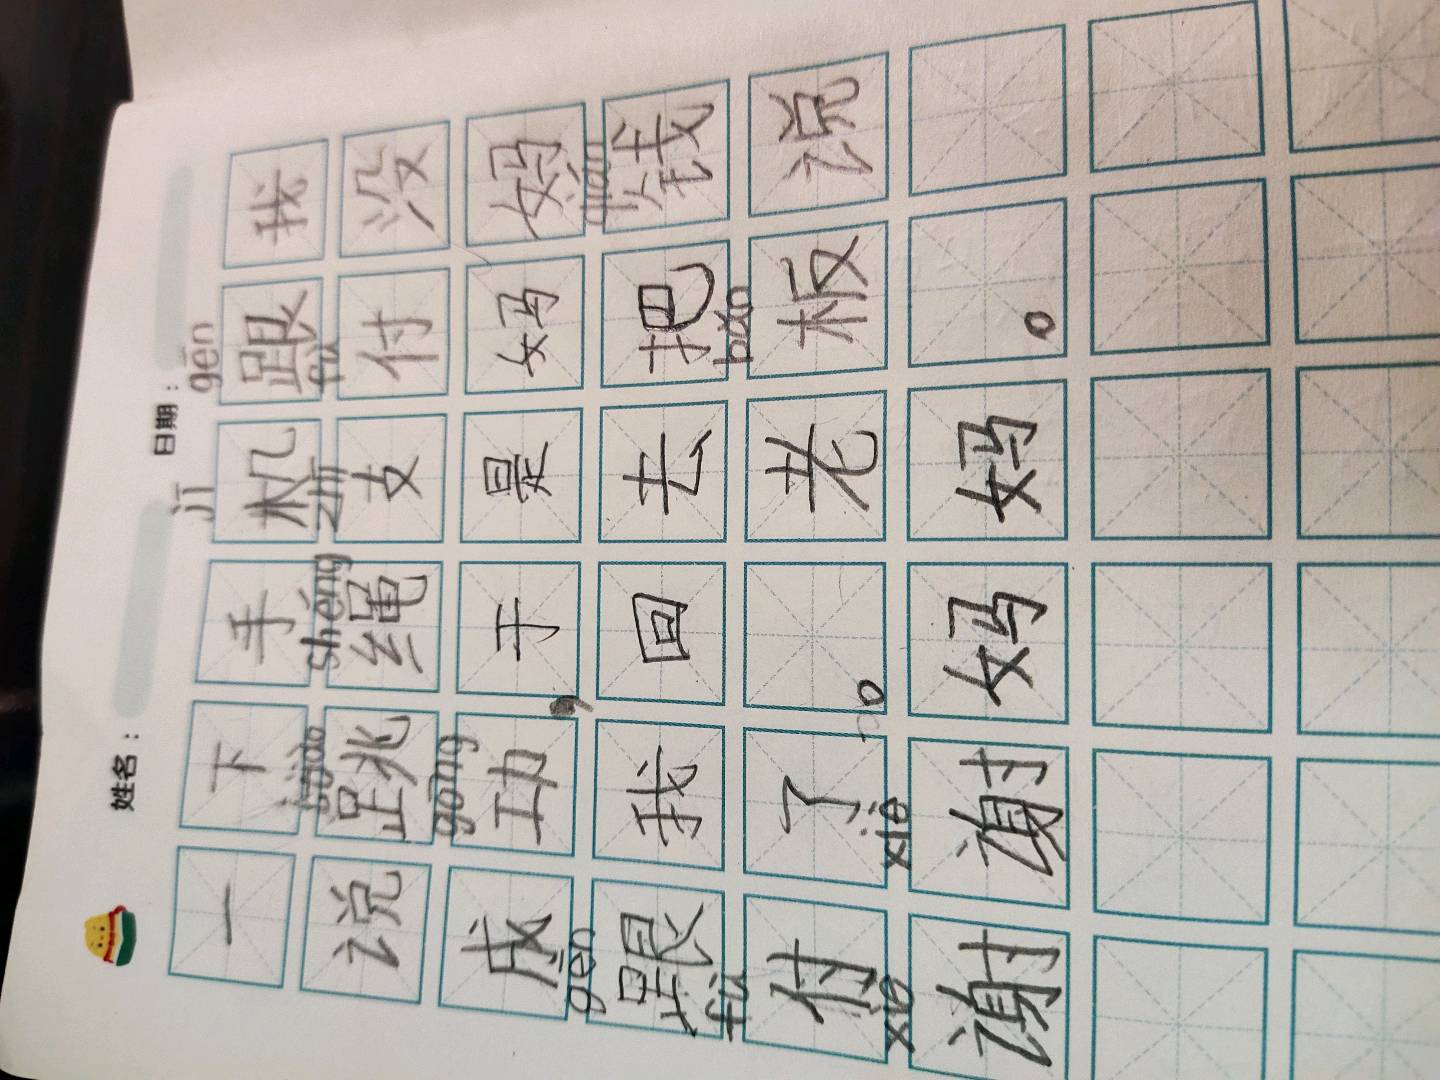 姓名： 日期：
jī gēn
一下手机跟我
tiào shéng zhī fù
说跳绳支付没
gōng
成功，于是妈妈
gēn qián
跟我回去把钱
fù bǎn
付了。老板说
xiè xiè
谢谢妈妈。